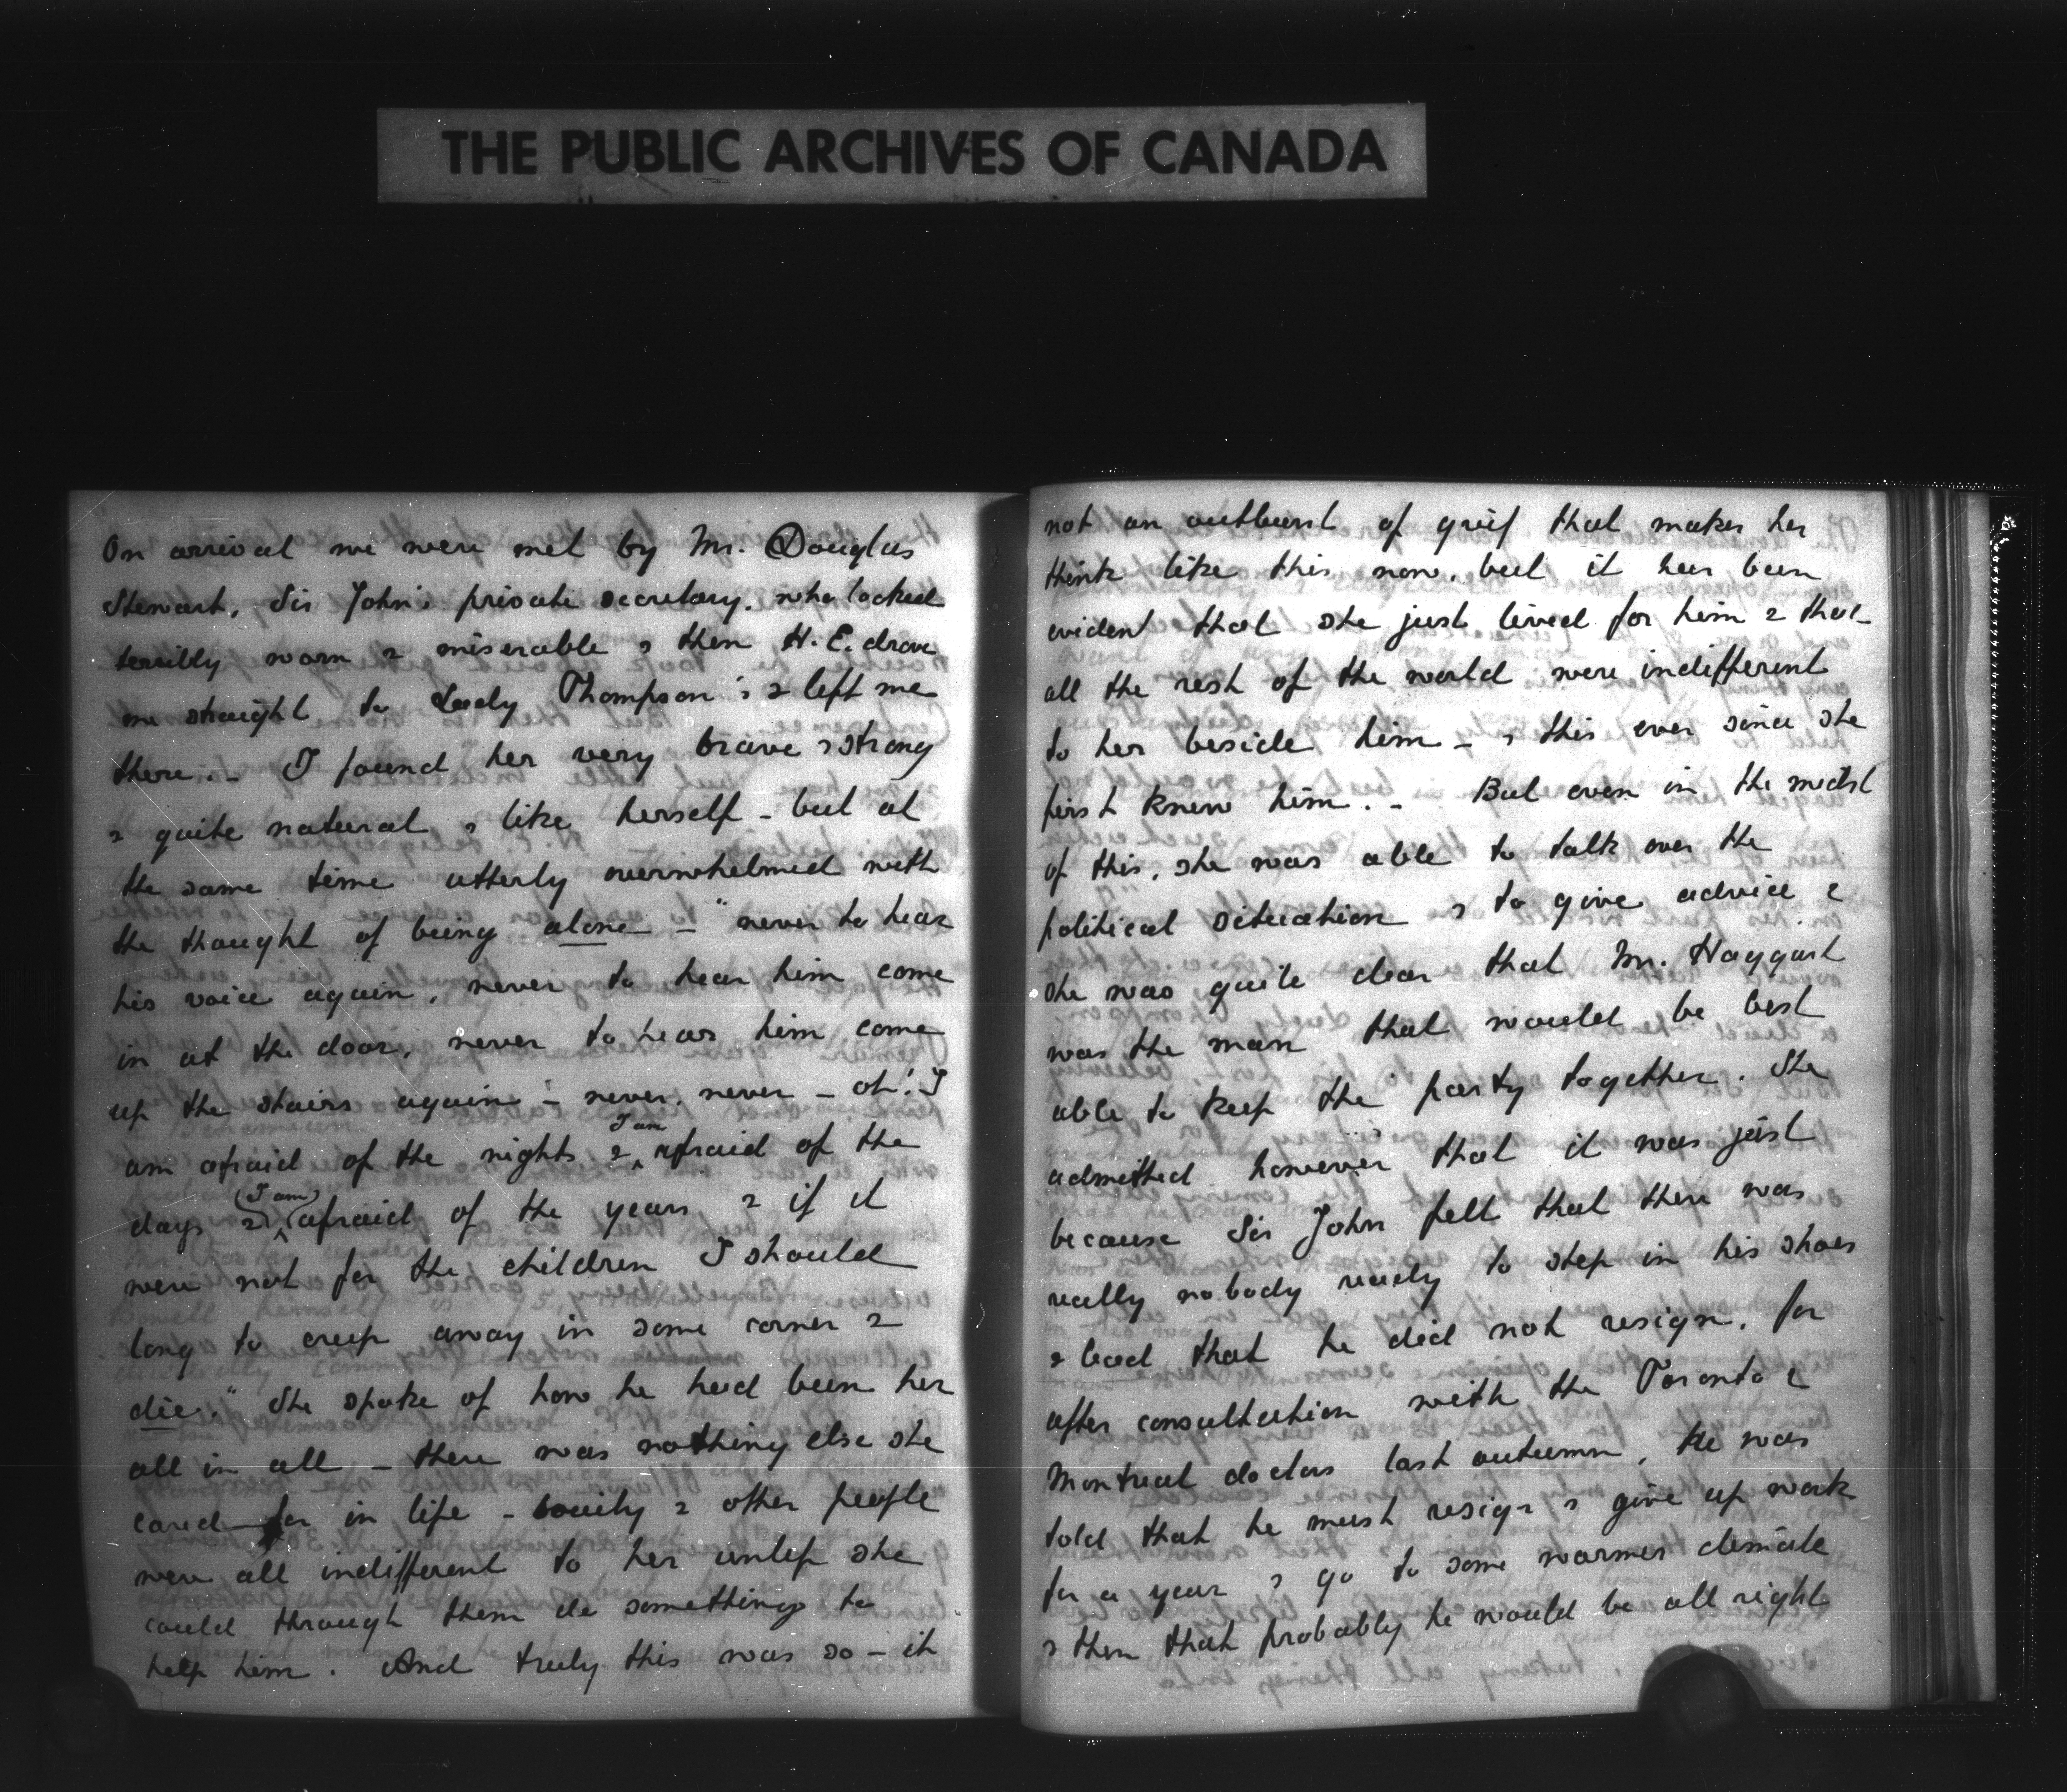 THE PUBLIC ARCHIVES OF CANADA
On arrival we were met by Mr. Douglas
Stewart, Sir John's private secretary, who looked
terribly worn & miserable & then H.E. drove
me straight to Lady Thompson's & left me
there. - I found her very brave & strong
& quite natural & like herself - but at
the same time utterly overwhelmed with
the thought of being alone - "never to hear
his voice again, never to hear him come
in at the door, never to hear him come
up the stairs again - never, never - oh! I
am afraid of the nights & I am afraid of the
days & (I am) afraid of the years & if it
were not for the children I should
long to creep away in some corner &
die." She spoke of how he had been her
all in all - there was nothing else she
cared for in life - society & other people
were all indifferent to her unless she
could through them do something to
help him. And truly this was so - it
not an outburst of grief that makes her
think like this now, but it has been
evident that she just lived for him & that
all the rest of the world were indifferent
to her beside him - & this ever since she
first knew him. - But even in the midst
of this, she was able to talk over the
political situation & to give advice &
she was quite clear that Mr. Haggart
was the man that would be best
able to keep the party together. She
admitted however that it was just
because Sir John felt that there was
really nobody ready to step in his shoes
& lead that he did not resign, for
after consultation with the Toronto &
Montreal doctors last autumn, he was
told that he must resign & give up work
for a year & go to some warmer climate
& then that probably he would be all right